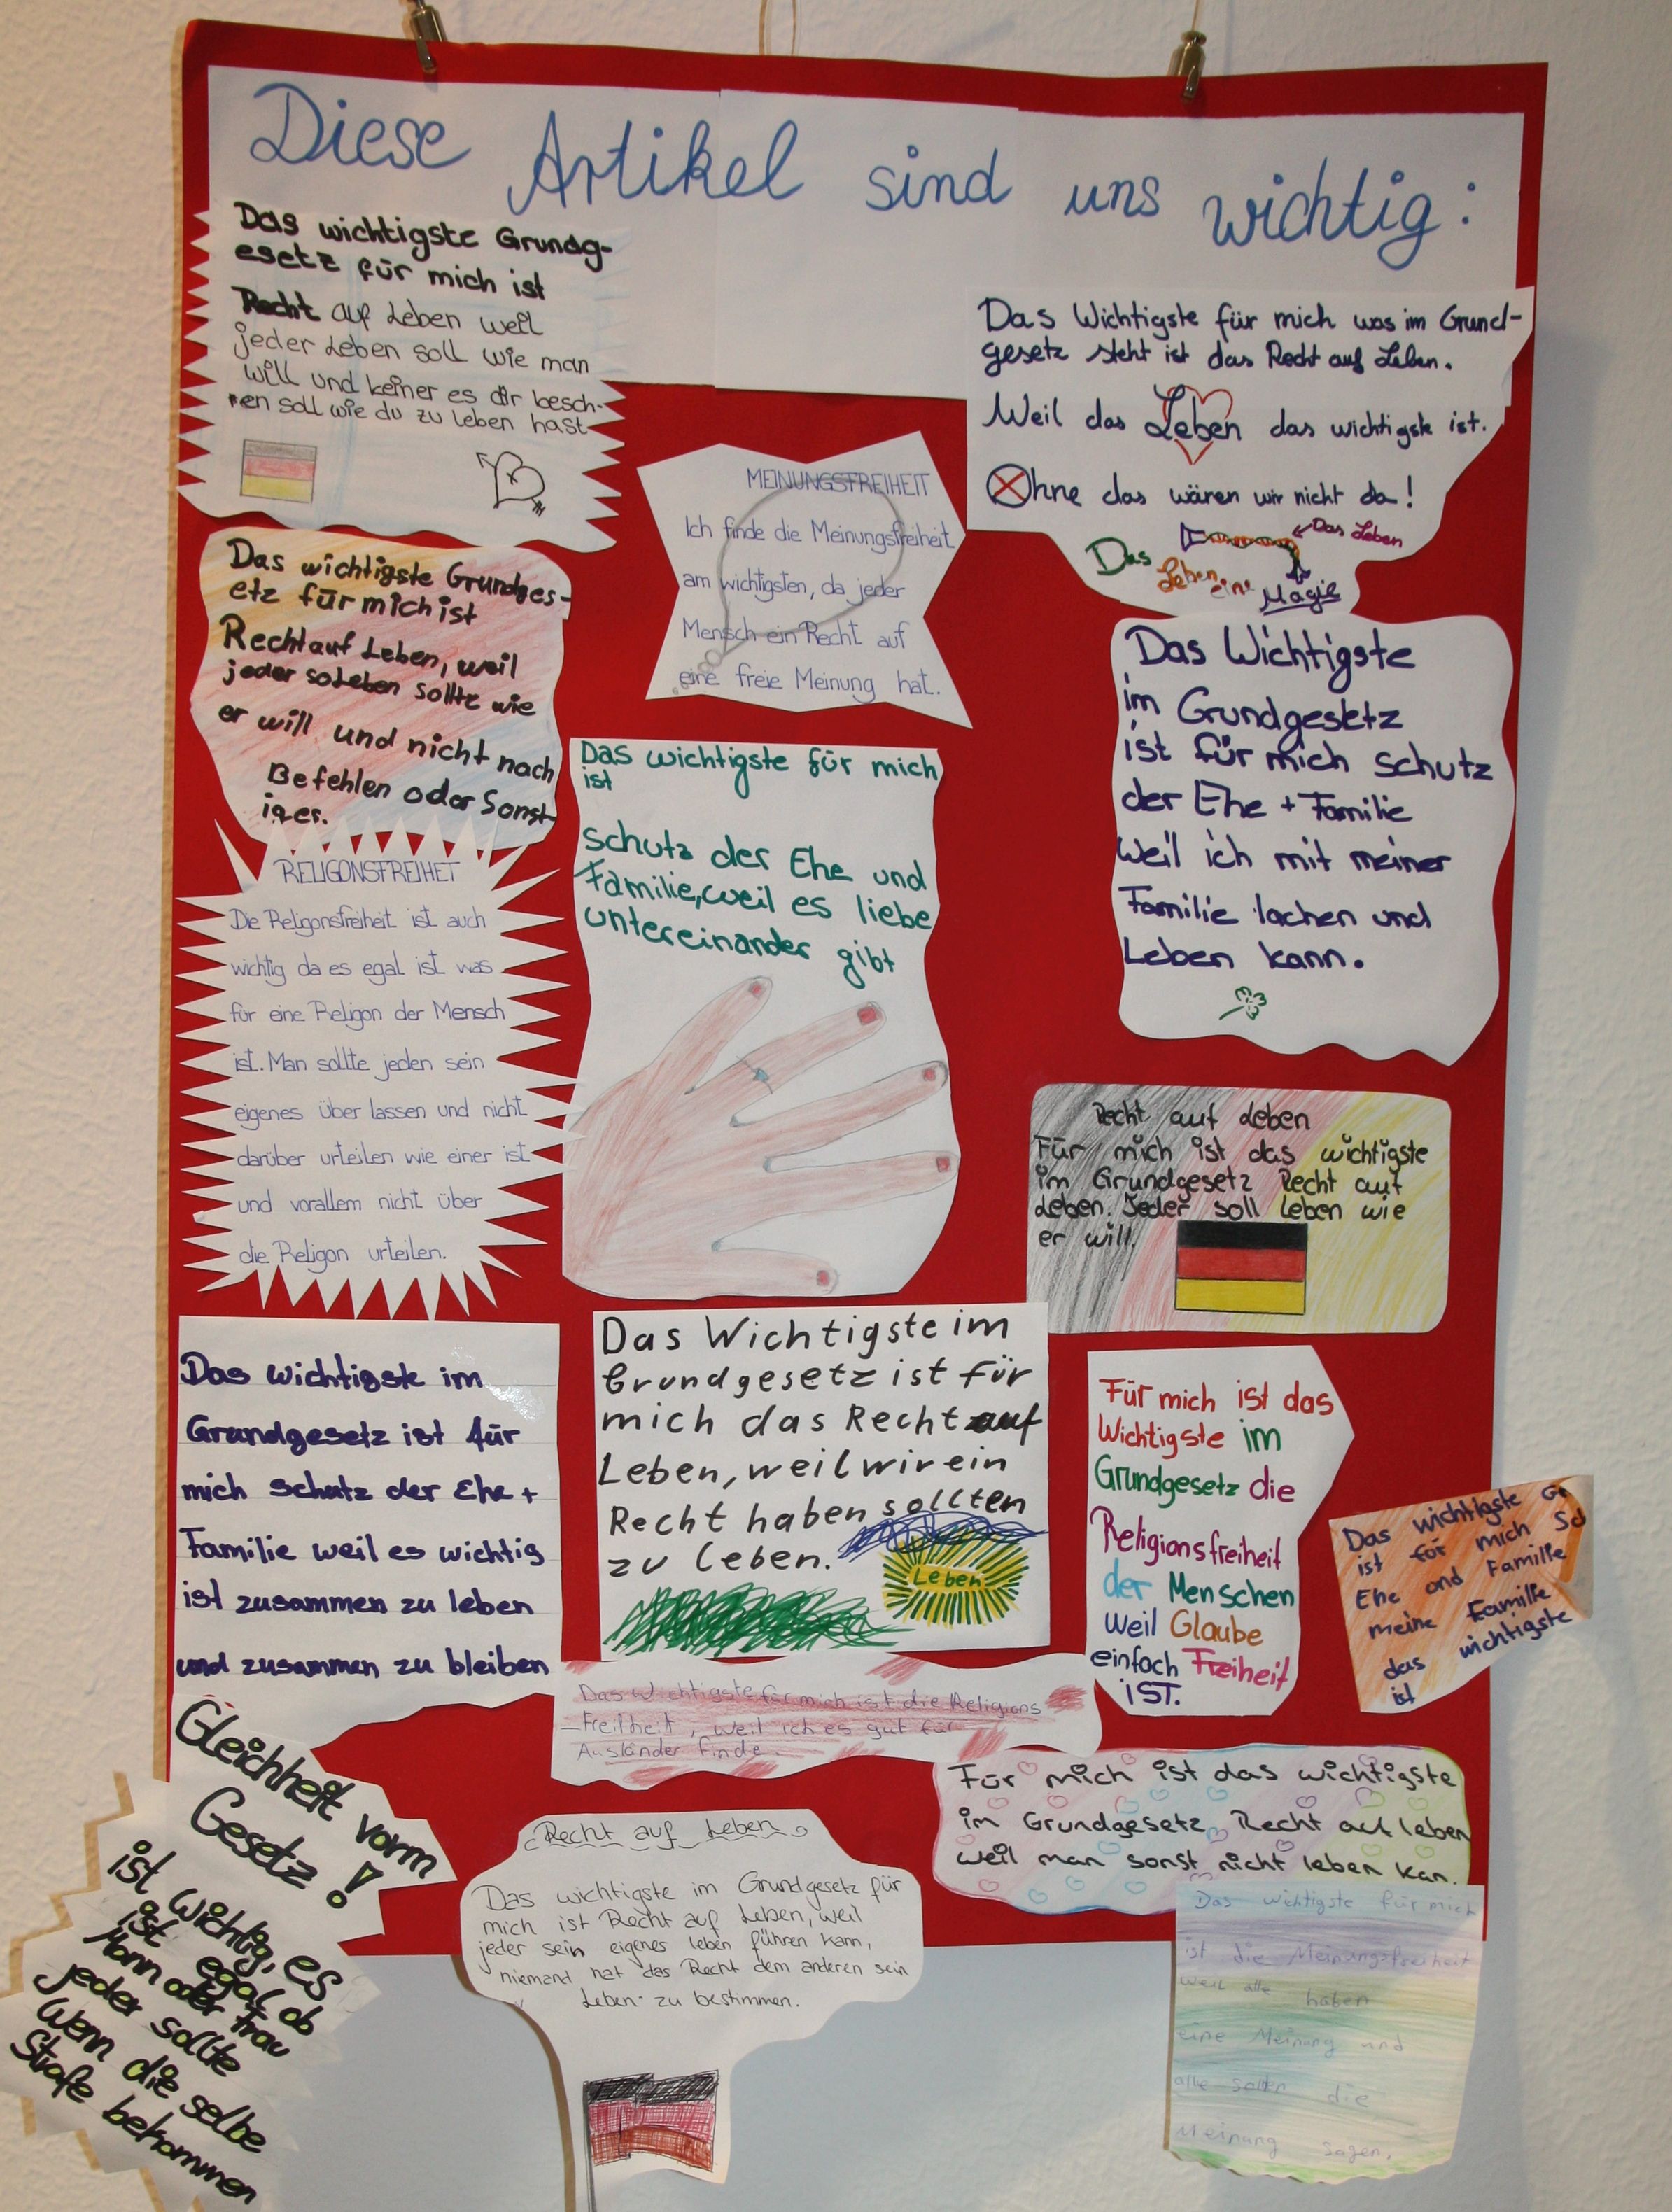 Diese Artikel sind uns wichtig:
Das wichtigste Grundg-
esetz für mich ist
Recht auf Leben weil
jeder Leben soll wie man
will und keiner es dir besch-
ren soll wie du zu leben hast
Das Wichtigste für mich was im Grund-
gesetz steht ist das Recht auf Leben.
Weil das Leben das wichtigste ist.
Ohne das wären wir nicht da!
Das Leben
Das Leben eine Magie
MEINUNGSFREIHEIT
Ich finde die Meinungsfreiheit
am wichtigsten, da jeder
Mensch ein Recht auf
eine freie Meinung hat.
Das wichtigste Grundges-
etz für mich ist
Recht auf Leben, weil
jeder so Leben sollte wie
er will und nicht nach
Befehlen oder Sonst-
iges.
Das Wichtigste
im Grundgesetz
ist für mich schutz
der Ehe + Familie
weil ich mit meiner
Familie lachen und
Leben kann.
Das wichtigste für mich
ist
schutz der Ehe und
Familie, weil es liebe
untereinander gibt
RELIGONSFREIHET
Die Religonsfreiheit ist auch
wichtig da es egal ist was
für eine Religon der Mensch
ist. Man sollte jeden sein
eigenes über lassen und nicht
darüber urteilen wie einer ist
und vorallem nicht über
die Religon urteilen.
Recht auf Leben
Für mich ist das wichtigste
im Grundgesetz Recht auf
Leben. Jeder soll leben wie
er will.
Das wichtigste im
Grundgesetz ist für
mich schutz der Ehe +
Familie weil es wichtig
ist zusammen zu leben
und zusammen zu bleiben
Das Wichtigste im
Grundgesetz ist für
mich das Recht auf
Leben, weil wir ein
Recht haben sollten
zu leben.
Leben
Für mich ist das
Wichtigste im
Grundgesetz die
Religionsfreiheit
der Menschen
weil Glaube
einfach Freiheit
IST.
Das wichtigste
ist für mich
Ehe und Familie
meine Familie
das wichtigste
ist
Das Wichtigste für mich ist die Religions
-Freiheit, weil ich es gut für
Ausländer finde.
Für mich ist das wichtigste
im Grundgesetz Recht auf leben
weil man sonst nicht leben kan.
Gleichheit vorm
Gesetz!
ist wichtig, es
ist egal ob
Mann oder Frau
jeder sollte
Wenn die selbe
Strafe bekommen
Recht auf Leben
Das wichtigste im Grundgesetz für
mich ist Recht auf Leben, weil
jeder sein eigenes leben führen kann,
niemand hat das Recht dem anderen sein
Leben zu bestimmen.
Das wichtigste für mich
ist die Meinungsfreiheit
weil alle haben
eine Meinung und
alle sollen die
Meinung sagen.